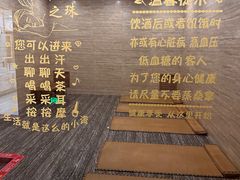 之珠
您可以进来
出汗
出聊天
喝茶
采耳
拾摩
生活就是这么的小湾
温馨提示
饮酒后或者饥饿时
亦或有心脏病 高血压
低血糖的客人
为了您的身心健康
请尽量不要蒸桑拿
健康享受 从这里开始